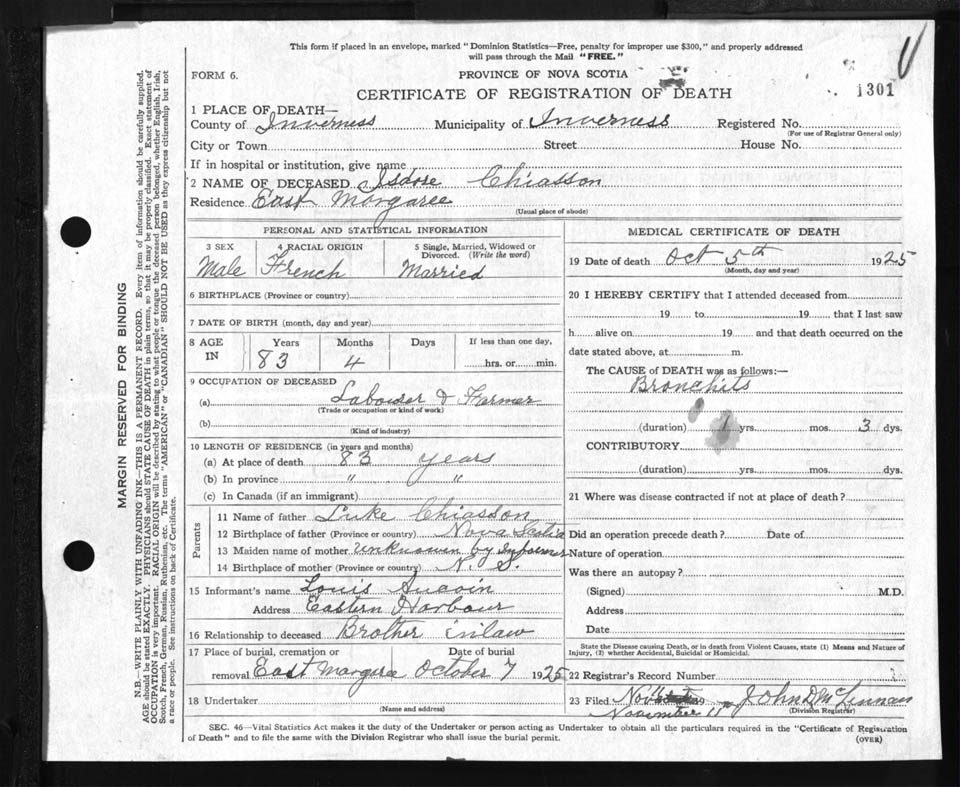 This form if placed in an envelope, marked "Dominion Statistics—Free, penalty for improper use $300," and properly addressed
will pass through the Mail "FREE."
FORM 6.
PROVINCE OF NOVA SCOTIA
CERTIFICATE OF REGISTRATION OF DEATH
1301
1 PLACE OF DEATH—
County of Inverness Municipality of Inverness Registered No.
(For use of Registrar General only)
City or Town Street House No.
If in hospital or institution, give name
2 NAME OF DECEASED Isdore Chiasson
Residence East Margaree
(Usual place of abode)
PERSONAL AND STATISTICAL INFORMATION
3 SEX 4 RACIAL ORIGIN 5 Single, Married, Widowed or Divorced. (Write the word)
Male French Married
6 BIRTHPLACE (Province or country)
7 DATE OF BIRTH (month, day and year)
8 AGE IN Years Months Days If less than one day,
83 4 hrs. or min.
9 OCCUPATION OF DECEASED
(a) Labourer & Farmer
(Trade or occupation or kind of work)
(b)
(Kind of industry)
10 LENGTH OF RESIDENCE (in years and months)
(a) At place of death 83 years
(b) In province " "
(c) In Canada (if an immigrant)
Parents
11 Name of father Luke Chiasson
12 Birthplace of father (Province or country) Nova Scotia
13 Maiden name of mother unknown by Informant
14 Birthplace of mother (Province or country) N. S.
15 Informant's name Louis Aucoin
Address Eastern Harbour
16 Relationship to deceased Brother inlaw
17 Place of burial, cremation or removal Date of burial
East Margaree October 7 1925
18 Undertaker
(Name and address)
MEDICAL CERTIFICATE OF DEATH
19 Date of death Oct 5th 1925
(Month, day and year)
20 I HEREBY CERTIFY that I attended deceased from
19 to 19 that I last saw
h alive on 19 and that death occurred on the
date stated above, at m.
The CAUSE of DEATH was as follows:—
Bronchits
(duration) 1 yrs. mos. 3 dys.
CONTRIBUTORY
(duration) yrs. mos. dys.
21 Where was disease contracted if not at place of death?
Did an operation precede death? Date of
Nature of operation
Was there an autopsy?
(Signed) M.D.
Address
Date
State the Disease causing Death, or in death from Violent Causes, state (1) Means and Nature of
Injury, (2) whether Accidental, Suicidal or Homicidal.
22 Registrar's Record Number
23 Filed 19 John D McLennan
November 11th (Division Registrar)
SEC. 46—Vital Statistics Act makes it the duty of the Undertaker or person acting as Undertaker to obtain all the particulars required in the "Certificate of Registration
of Death" and to file the same with the Division Registrar who shall issue the burial permit.
(OVER)
MARGIN RESERVED FOR BINDING
N.B.—WRITE PLAINLY WITH UNFADING INK—THIS IS A PERMANENT RECORD. Every item of information should be carefully supplied.
AGE should be stated EXACTLY. PHYSICIANS should STATE CAUSE OF DEATH in plain terms, so that it may be properly classified. Exact statement of
OCCUPATION is very important. RACIAL ORIGIN will be described by stating to what people or tongue the deceased person belonged, whether English, Irish,
Scotch, French, German, Russian, Ruthenian, etc. The terms "AMERICAN" or "CANADIAN" SHOULD NOT BE USED as they express citizenship but not
a race or people. See instructions on back of Certificate.